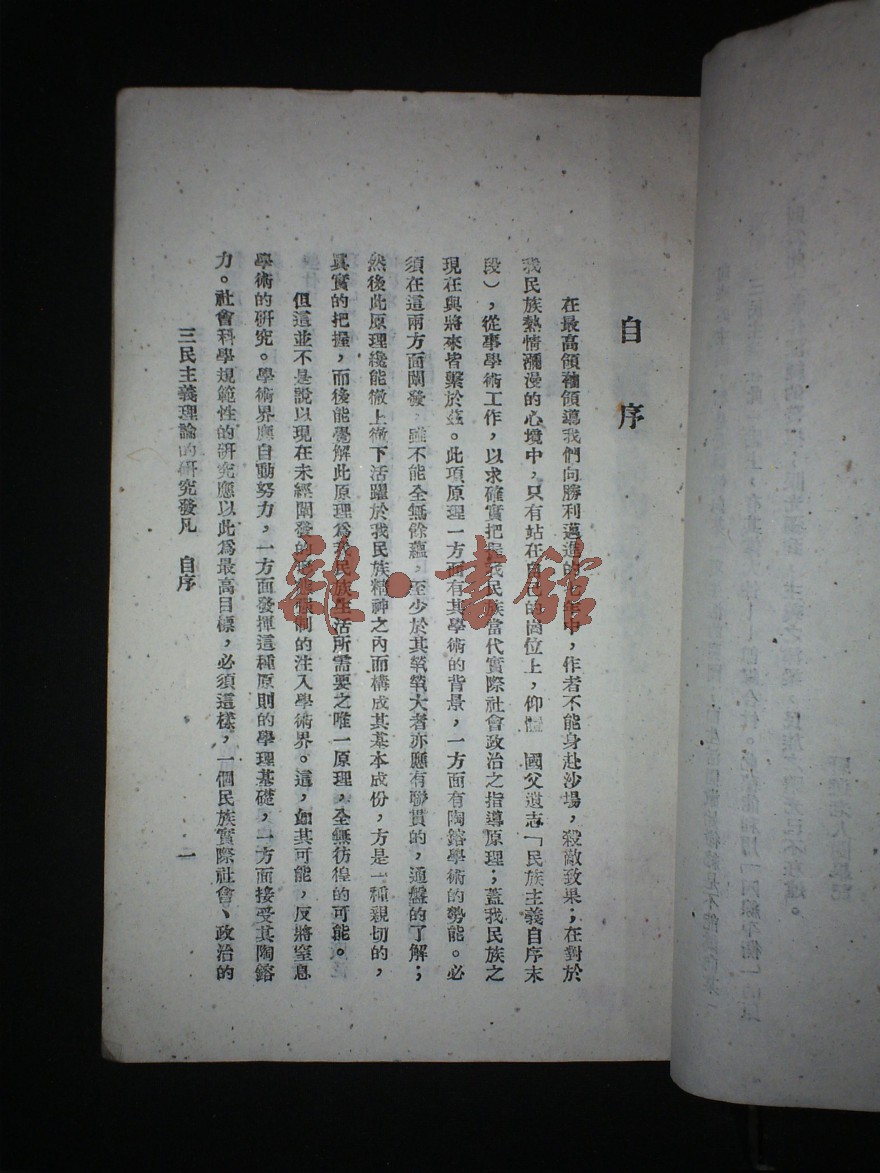 自序
在最高領袖領導我們向勝利邁進的七年中，作者不能身赴沙場，殺敵致果；在對於
我民族熱情瀰漫的心境中，只有站在自己的崗位上，仰體　國父遺志「民族主義自序末
段），從事學術工作，以求確實把握我民族當代實際社會政治之指導原理；蓋我民族之
現在與將來皆繫於茲。此項原理一方面有其學術的背景，一方面有陶鎔學術的勢能。必
須在這兩方面闡發，雖不能全無餘蘊，至少於其犖犖大者亦應有聯貫的，通盤的了解；
然後此原理纔能徹上徹下活躍於我民族精神之內而構成其基本成份，方是一種親切的，
眞實的把握，而後能覺解此原理爲我民族生活所需要之唯一原理，全無彷徨的可能。
但這並不是說以現在未經闡發的形態强制的注入學術界。這，如其可能，反將窒息
學術的研究。學術界應自動努力，一方面發揮這種原則的學理基礎，一方面接受其陶鎔
力。社會科學規範性的研究應以此爲最高目標，必須這樣，一個民族實際社會、政治的
三民主義理論的研究發凡　自序
一
雜·書館